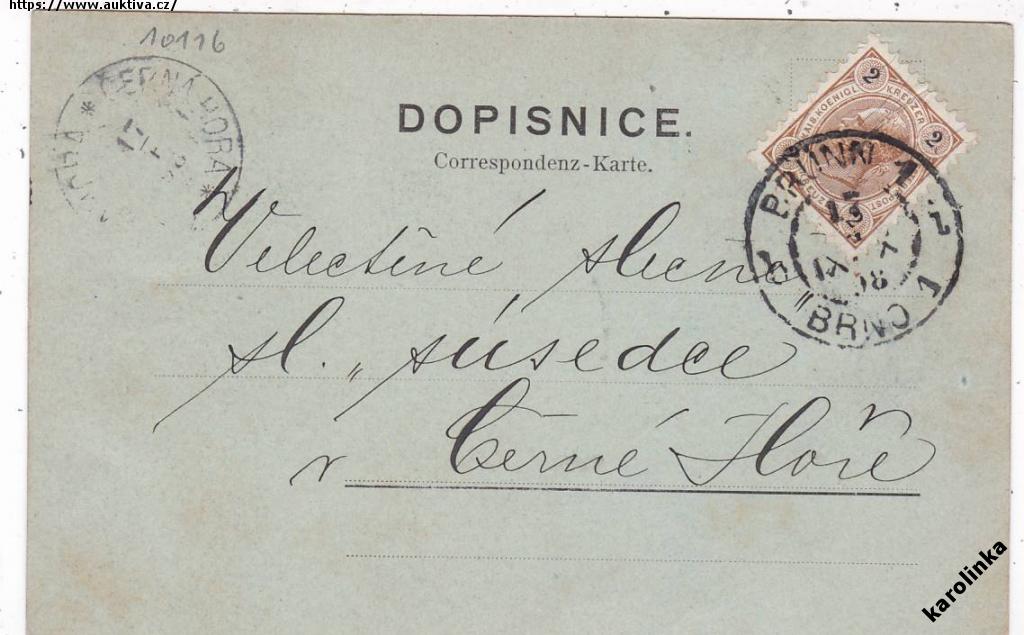 https://www.auktiva.cz/
10116
ČERNÁ HORA
17
DOPISNICE.
Correspondenz-Karte.
2
KAIS. KOENIGL.
KREUZER
2
POST
BRUNN 1
98
BRNO 1
Velectěné slecna
sl. „súsedce
v Černé Hoře
karolinka